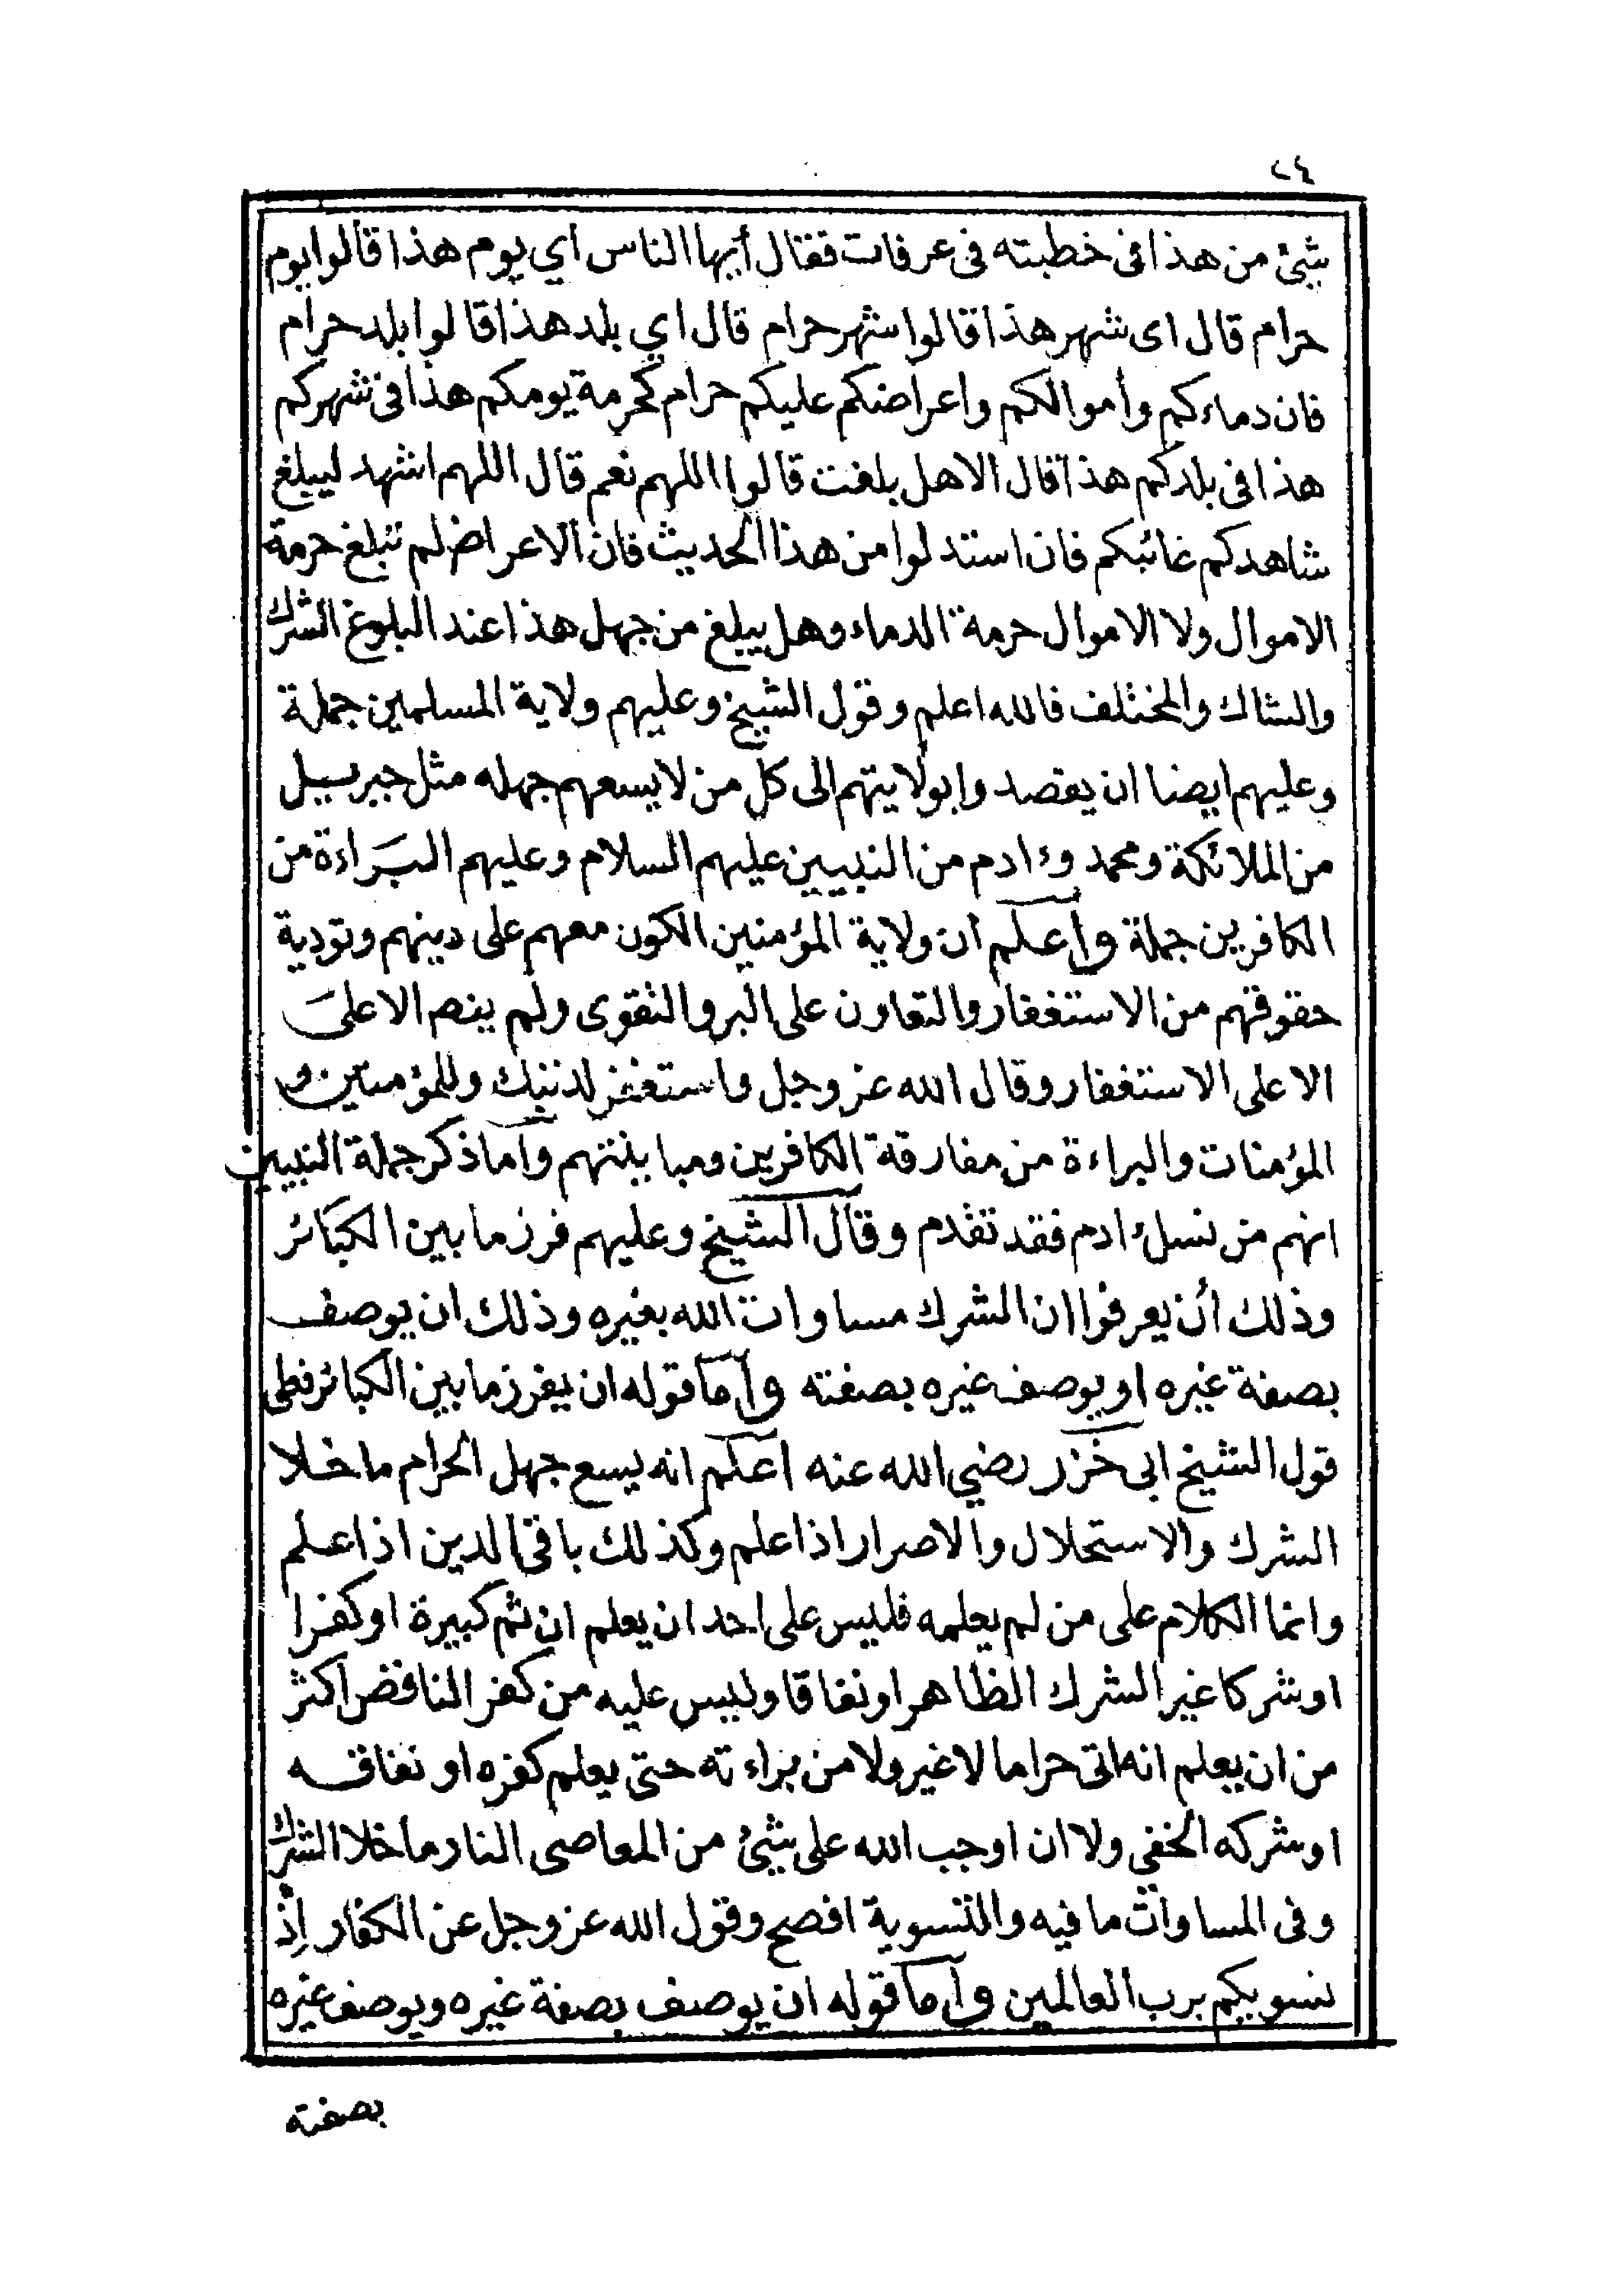 ٢٤
شيئ من هذا في خطبته في عرفات فقال أيها الناس اي يوم هذا قالوا يوم
حرام قال اى شهر هذا قالوا شهر حرام قال اي بلد هذا قالوا بلد حرام
فان دماءكم وأموالكم واعراضكم عليكم حرام كحرمة يومكم هذا في شهركم
هذا في بلدكم هذا قال الاهل بلغت قالوا اللهم نعم قال اللهم اشهد ليبلغ
شاهدكم غائبكم فان استدلوا من هذا الحديث فان الاعراض لم تبلغ حرمة
الاموال ولا الاموال حرمة الدماء وهل يبلغ من جهل هذا عند البلوغ الشرك
والشاك والمختلف فالله اعلم وقول الشيخ وعليهم ولاية المسلمين جملة
وعليهم ايضا ان يقصدوا بولايتهم الى كل من لا يسعهم جهله مثل جبريل
من الملائكة ومحمد وءادم من النبيين عليهم السلام وعليهم البَراءة من
الكافرين جملة وأعلم ان ولاية المؤمنين الكون معهم على دينهم وتودية
حقوقهم من الاستغفار والتعاون على البر والتقوى ولم ينص الا علىَ
الا على الاستغفار وقال الله عز وجل واستغفر لذنبك وللمؤمنين و
المؤمنات والبراءة من مفارقة الكافرين ومباينتهم واما ذكر جملة النبيين
انهم من نسل ءادم فقد تقدم وقال الشيخ وعليهم فرز ما بين الكبَائر
وذلك أن يعرفوا ان الشرك مساوات الله بغيره وذلك ان يوصف
بصفة غيره او يوصف غيره بصفته وأما قوله ان يفرز ما بين الكبائر فطى
قول الشيخ ابى خَزر رضي الله عنه اعلم انه يسع جهل الحرام ما خلا
الشرك والاستحلال والاصرار اذا علم وكذلك باقي الدين اذا علم
وانما الكلام على من لم يعلمه فليس على احد ان يعلم ان ثم كبيرة او كفرا
او شركا غير الشرك الظاهر او نفاقا وليس عليه من كفر المنافض اكثر
من ان يعلم انه اتى حراما لا غير ولا من براءته حتى يعلم كفره او نفاقه
او شركه الخفي ولا ان اوجب الله على شيئ من المعاصى النار ما خلا الشرك
وفى المساوات ما فيه والتسوية افصح وقول الله عز وجل عن الكفار إذ
نسويكم برب العالمين وأما قوله ان يوصف بصفة غيره ويوصف غيره
بصفته